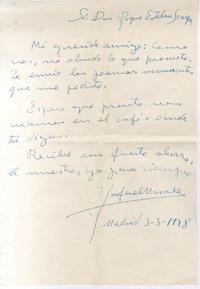 Sr. Don Roque Esteban Scarpa
Mi querido amigo: Como
ves, no olvido lo que prometo.
Te envío los poemas manuscritos
que me pediste.
Espero que pronto nos
veamos en el café o donde
tú digas.
Recibe un fuerte abrazo,
el nuestro, ya para siempre
Rafael Morales
Madrid 3-3-1948